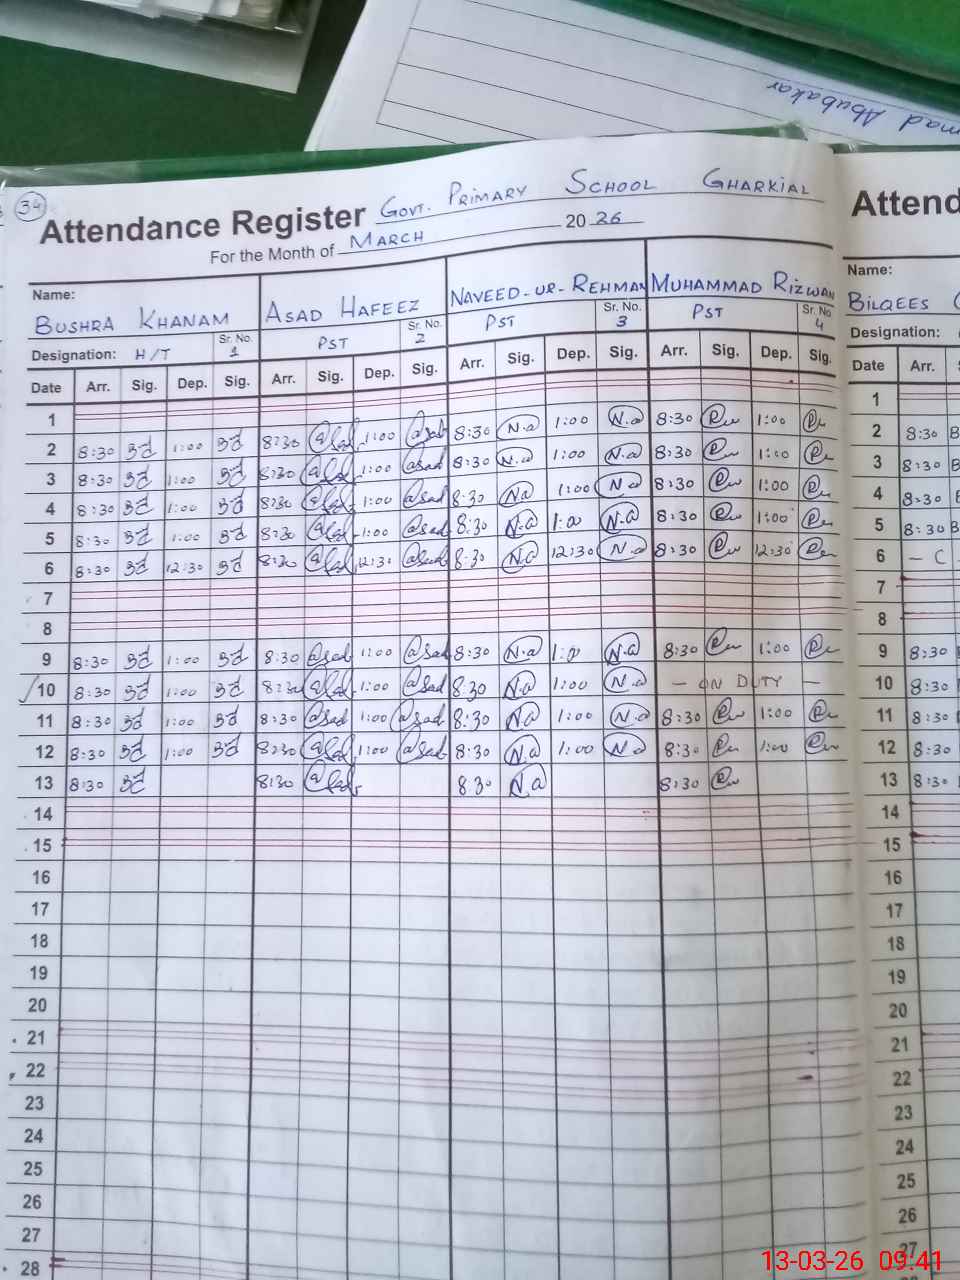 mad Abubakar
34
Attendance Register Govt. Primary School Gharkial
For the Month of March 2026
Name: Bushra Khanam Asad Hafeez Naveed-ur-Rehman Muhammad Rizwan
Designation: H/T Sr. No. 1 PST Sr. No. 2 PST Sr. No. 3 PST Sr. No. 4
Date Arr. Sig. Dep. Sig. Arr. Sig. Dep. Sig. Arr. Sig. Dep. Sig. Arr. Sig. Dep. Sig.
1
2 8:30 1:00 8:30 1:00 Asad 8:30 N.a 1:00 N.a 8:30 1:00
3 8:30 1:00 8:30 1:00 Asad 8:30 N.a 1:00 N.a 8:30 1:00
4 8:30 1:00 8:30 1:00 Asad 8:30 Na 1:00 Na 8:30 1:00
5 8:30 1:00 8:30 1:00 Asad 8:30 N.a 1:00 N.a 8:30 1:00
6 8:30 12:30 8:30 12:30 Asad 8:30 N.a 12:30 N.a 8:30 12:30
7
8
9 8:30 1:00 8:30 Asad 1:00 Asad 8:30 N.a 1:00 N.a 8:30 1:00
10 8:30 1:00 8:30 1:00 Asad 8:30 N.a 1:00 N.a - ON DUTY -
11 8:30 1:00 8:30 Asad 1:00 Asad 8:30 N.a 1:00 N.a 8:30 1:00
12 8:30 1:00 8:30 1:00 Asad 8:30 N.a 1:00 N.a 8:30 1:00
13 8:30 8:30 8:30 N.a 8:30
14
15
16
17
18
19
20
21
22
23
24
25
26
27
28
Attend
Name:
Bilqees
Designation:
Date Arr.
1
2 8:30
3 8:30
4 8:30
5 8:30
6 - C
7
8
9 8:30
10 8:30
11 8:30
12 8:30
13 8:30
14
15
16
17
18
19
20
21
22
23
24
25
26
27
13-03-26 09:41